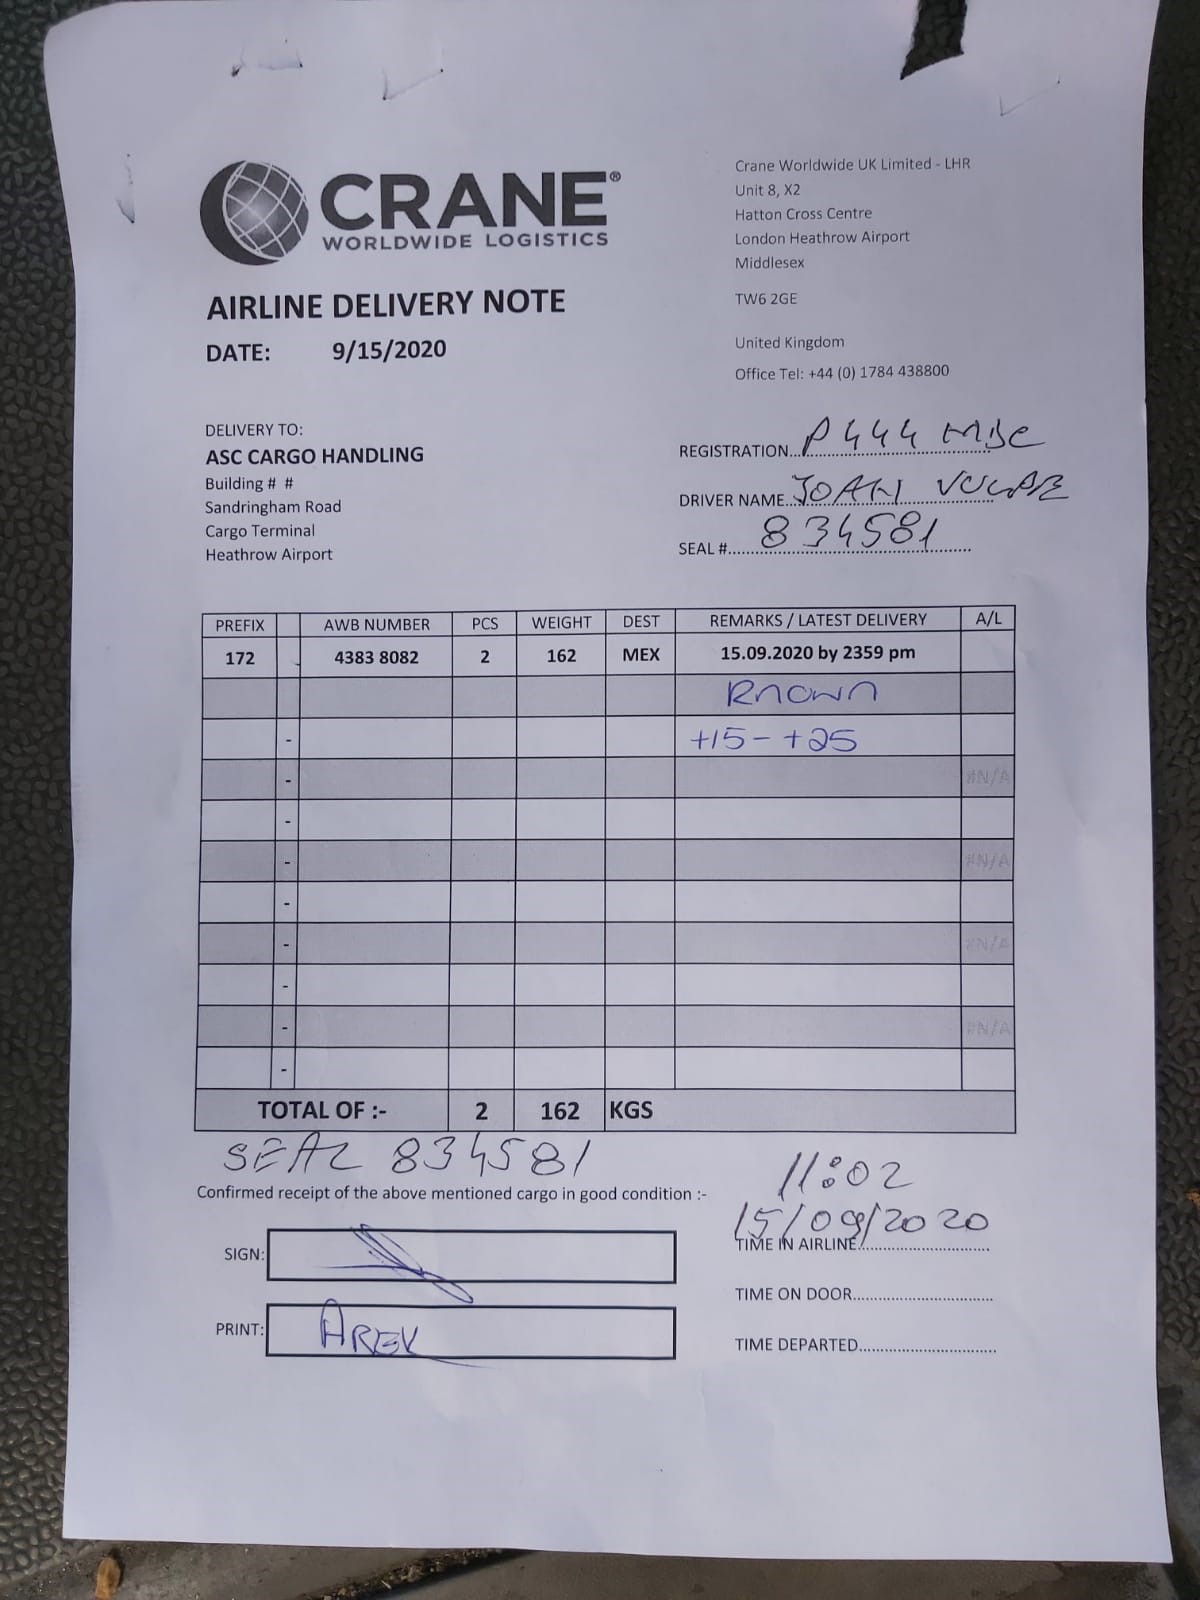 CRANE®
WORLDWIDE LOGISTICS
Crane Worldwide UK Limited - LHR
Unit 8, X2
Hatton Cross Centre
London Heathrow Airport
Middlesex
TW6 2GE
United Kingdom
Office Tel: +44 (0) 1784 438800
AIRLINE DELIVERY NOTE
DATE: 9/15/2020
DELIVERY TO:
ASC CARGO HANDLING
Building # #
Sandringham Road
Cargo Terminal
Heathrow Airport
REGISTRATION... P444 MBC
DRIVER NAME...
SEAL #... 834581
PREFIX AWB NUMBER PCS WEIGHT DEST REMARKS / LATEST DELIVERY A/L
172 - 4383 8082 2 162 MEX 15.09.2020 by 2359 pm
Known
- +15 - +25
- #N/A
-
- #N/A
-
- #N/A
-
- #N/A
-
TOTAL OF :- 2 162 KGS
SEAL 834581
Confirmed receipt of the above mentioned cargo in good condition :-
SIGN:
PRINT: AREK
11:02
15/09/2020
TIME IN AIRLINE...
TIME ON DOOR...
TIME DEPARTED...